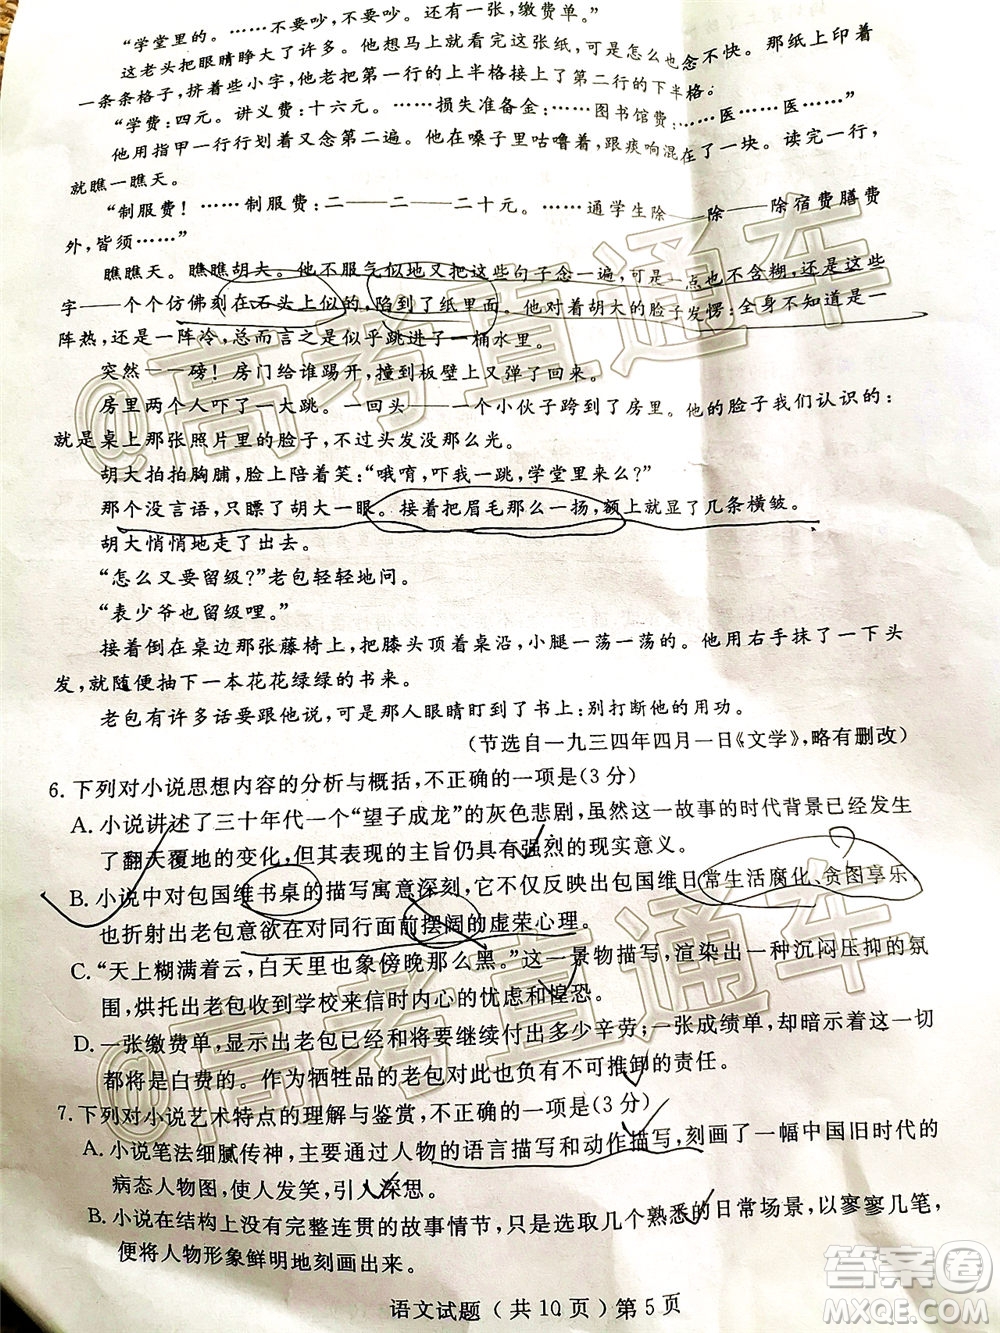 “学堂里的。……不要吵,不要吵。还有一张,缴费单。”
这老头把眼睛睁大了许多。他想马上就念完这张纸,可是怎么也念不快。那纸上印着
一条条格子,挤着些小字,他老把第一行的上半格接上了第二行的下半格。
“学费:四元。讲义费:十六元。……损失准备金:……图书馆费:……医……医……”
他用指甲一行行划着又念第二遍。他在嗓子里咕噜着,跟痰响混在了一块。读完一行,
就瞧一瞧天。
“制服费！……制服费:二——二——二十元。……通学生除——除——除宿费膳费
外,皆须……”
瞧瞧天。瞧瞧胡大。他不服气似地又把这些句子念一遍,可是一点也不含糊,还是这些
字——个个仿佛刻在石头上似的,陷到了纸里面。他对着胡大的脸子发愣:全身不知道是一
阵热,还是一阵冷,总而言之是似乎跳进了一桶水里。
突然——磅！房门给谁踢开,撞到板壁上又弹了回来。
房里两个人吓了一大跳。一回头——一个小伙子跨到了房里。他的脸子我们认识的:
就是桌上那张照片里的脸子,不过头发没那么光。
胡大拍拍胸脯,脸上陪着笑:“哦唷,吓我一跳,学堂里来么?”
那个没言语,只瞟了胡大一眼。接着把眉毛那么一扬,额上就显了几条横皱。
胡大悄悄地走了出去。
“怎么又要留级?”老包轻轻地问。
“表少爷也留级哩。”
接着倒在桌边那张藤椅上,把膝头顶着桌沿,小腿一荡一荡的。他用右手抹了一下头
发,就随便抽下一本花花绿绿的书来。
老包有许多话要跟他说,可是那人眼睛盯到了书上:别打断他的用功。
(节选自一九三四年四月一日《文学》,略有删改)
6.下列对小说思想内容的分析与概括,不正确的一项是(3 分)
A.小说讲述了三十年代一个“望子成龙”的灰色悲剧,虽然这一故事的时代背景已经发生
了翻天覆地的变化,但其表现的主旨仍具有强烈的现实意义。
B.小说中对包国维书桌的描写寓意深刻,它不仅反映出包国维日常生活腐化、贪图享乐
也折射出老包意欲在对同行面前摆阔的虚荣心理。
C.“天上糊满着云,白天里也象傍晚那么黑。”这一景物描写,渲染出一种沉闷压抑的氛
围,烘托出老包收到学校来信时内心的忧虑和惶恐。
D.一张缴费单,显示出老包已经和将要继续付出多少辛劳;一张成绩单,却暗示这一切
都将是白费的。作为牺牲品的老包是此剧不可推卸的责任。
7.下列对小说艺术特点的理解与鉴赏,不正确的一项是(3 分)
A.小说笔法细腻传神,主要通过人物的语言描写和动作描写,刻画了一幅中国旧时代的
病态人物图,使人发笑,引人深思。
B.小说在结构上没有完整连贯的故事情节,只是选取几个熟悉的日常场景,以寥寥几笔,
便将人物形象鲜明地刻画出来。
语文试题（共 10 页）第 5 页
@高考直通车
@高考直通车
答案圈
MXQE.COM